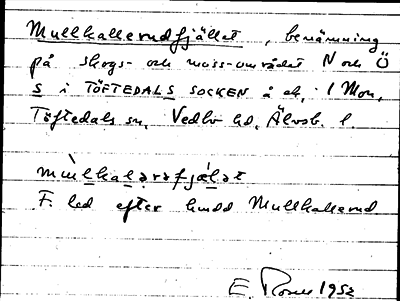 Mullkallerudfjället, benämning
på skogs- och moss-området N och Ö
S i TÖFTEDALS SOCKEN å ek. 1 Mon,
Töftedals sn, Vedbo hd, Älvsb. l.
mùlkaləräfjælət
F. led efter hmdd Mullkallerud
E. 1953